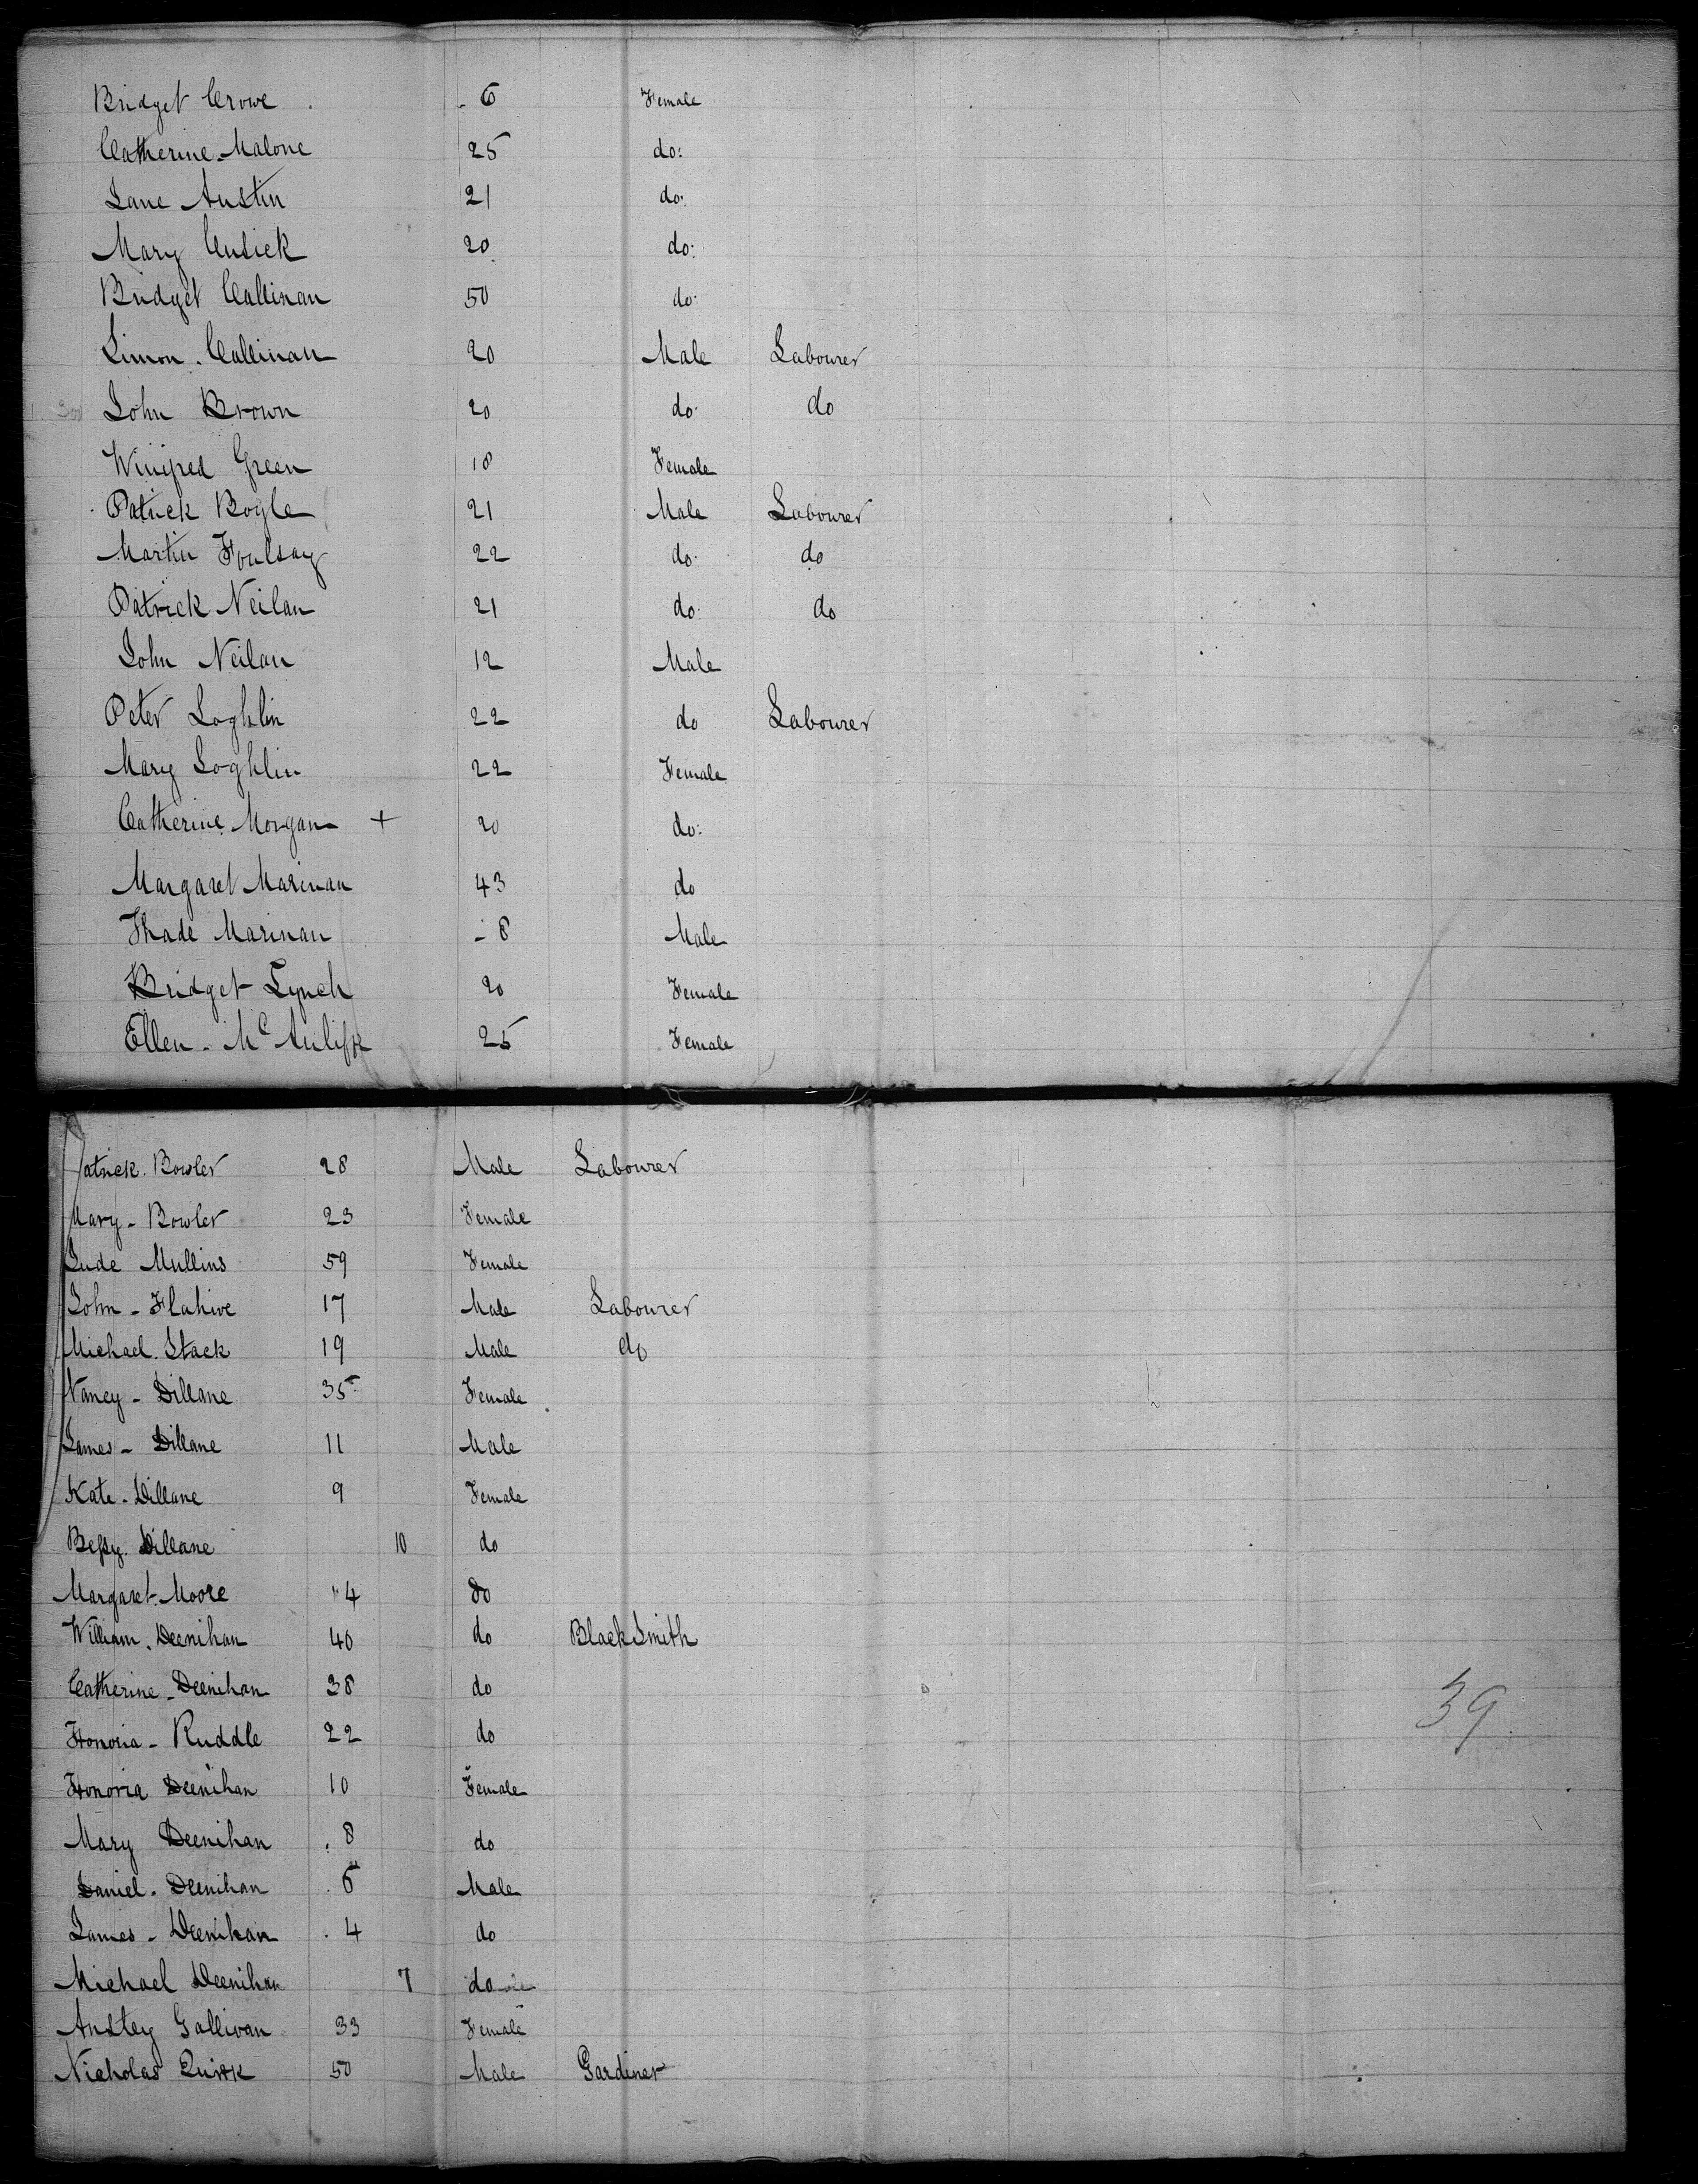 Bridget Crowe 6 Female
Catherine Malone 25 do:
Jane Austin 21 do:
Mary Cusick 20 do:
Bridget Callinan 50 do
Simon Callinan 20 Male Labourer
John Brown 20 do do
Winifred Green 18 Female
Patrick Boyle 21 Male Labourer
Martin 22 do do
Patrick Neilan 21 do do
John Neilan 12 Male
Peter Loghlin 22 do Labourer
Mary Loghlin 22 Female
Catherine Morgan + 20 do:
Margaret Marinan 43 do
Thade Marinan 8 Male
Bridget Lynch 20 Female
Ellen Mc 25 Female
Patrick Bowler 28 Male Labourer
Mary - Bowler 23 Female
Jude Mullins 59 Female
John - Flahive 17 Male Labourer
Michael Stack 19 Male do
Nancy - Dillane 35 Female
James - Dillane 11 Male
Kate - Dillane 9 Female
Bessy Dillane 10 do
Margaret Moore 4 do
William Deenihan 40 do BlackSmith
Catherine - Deenihan 38 do
Honoria - Ruddle 22 do
Honoria Deenihan 10 Female
Mary Deenihan 8 do
Daniel Deenihan 6 Male
James - Deenihan 4 do
Michael Deenihan 7 do
Anstey Gallivan 33 Female
Nicholas Quirk 50 Male Gardiner
39